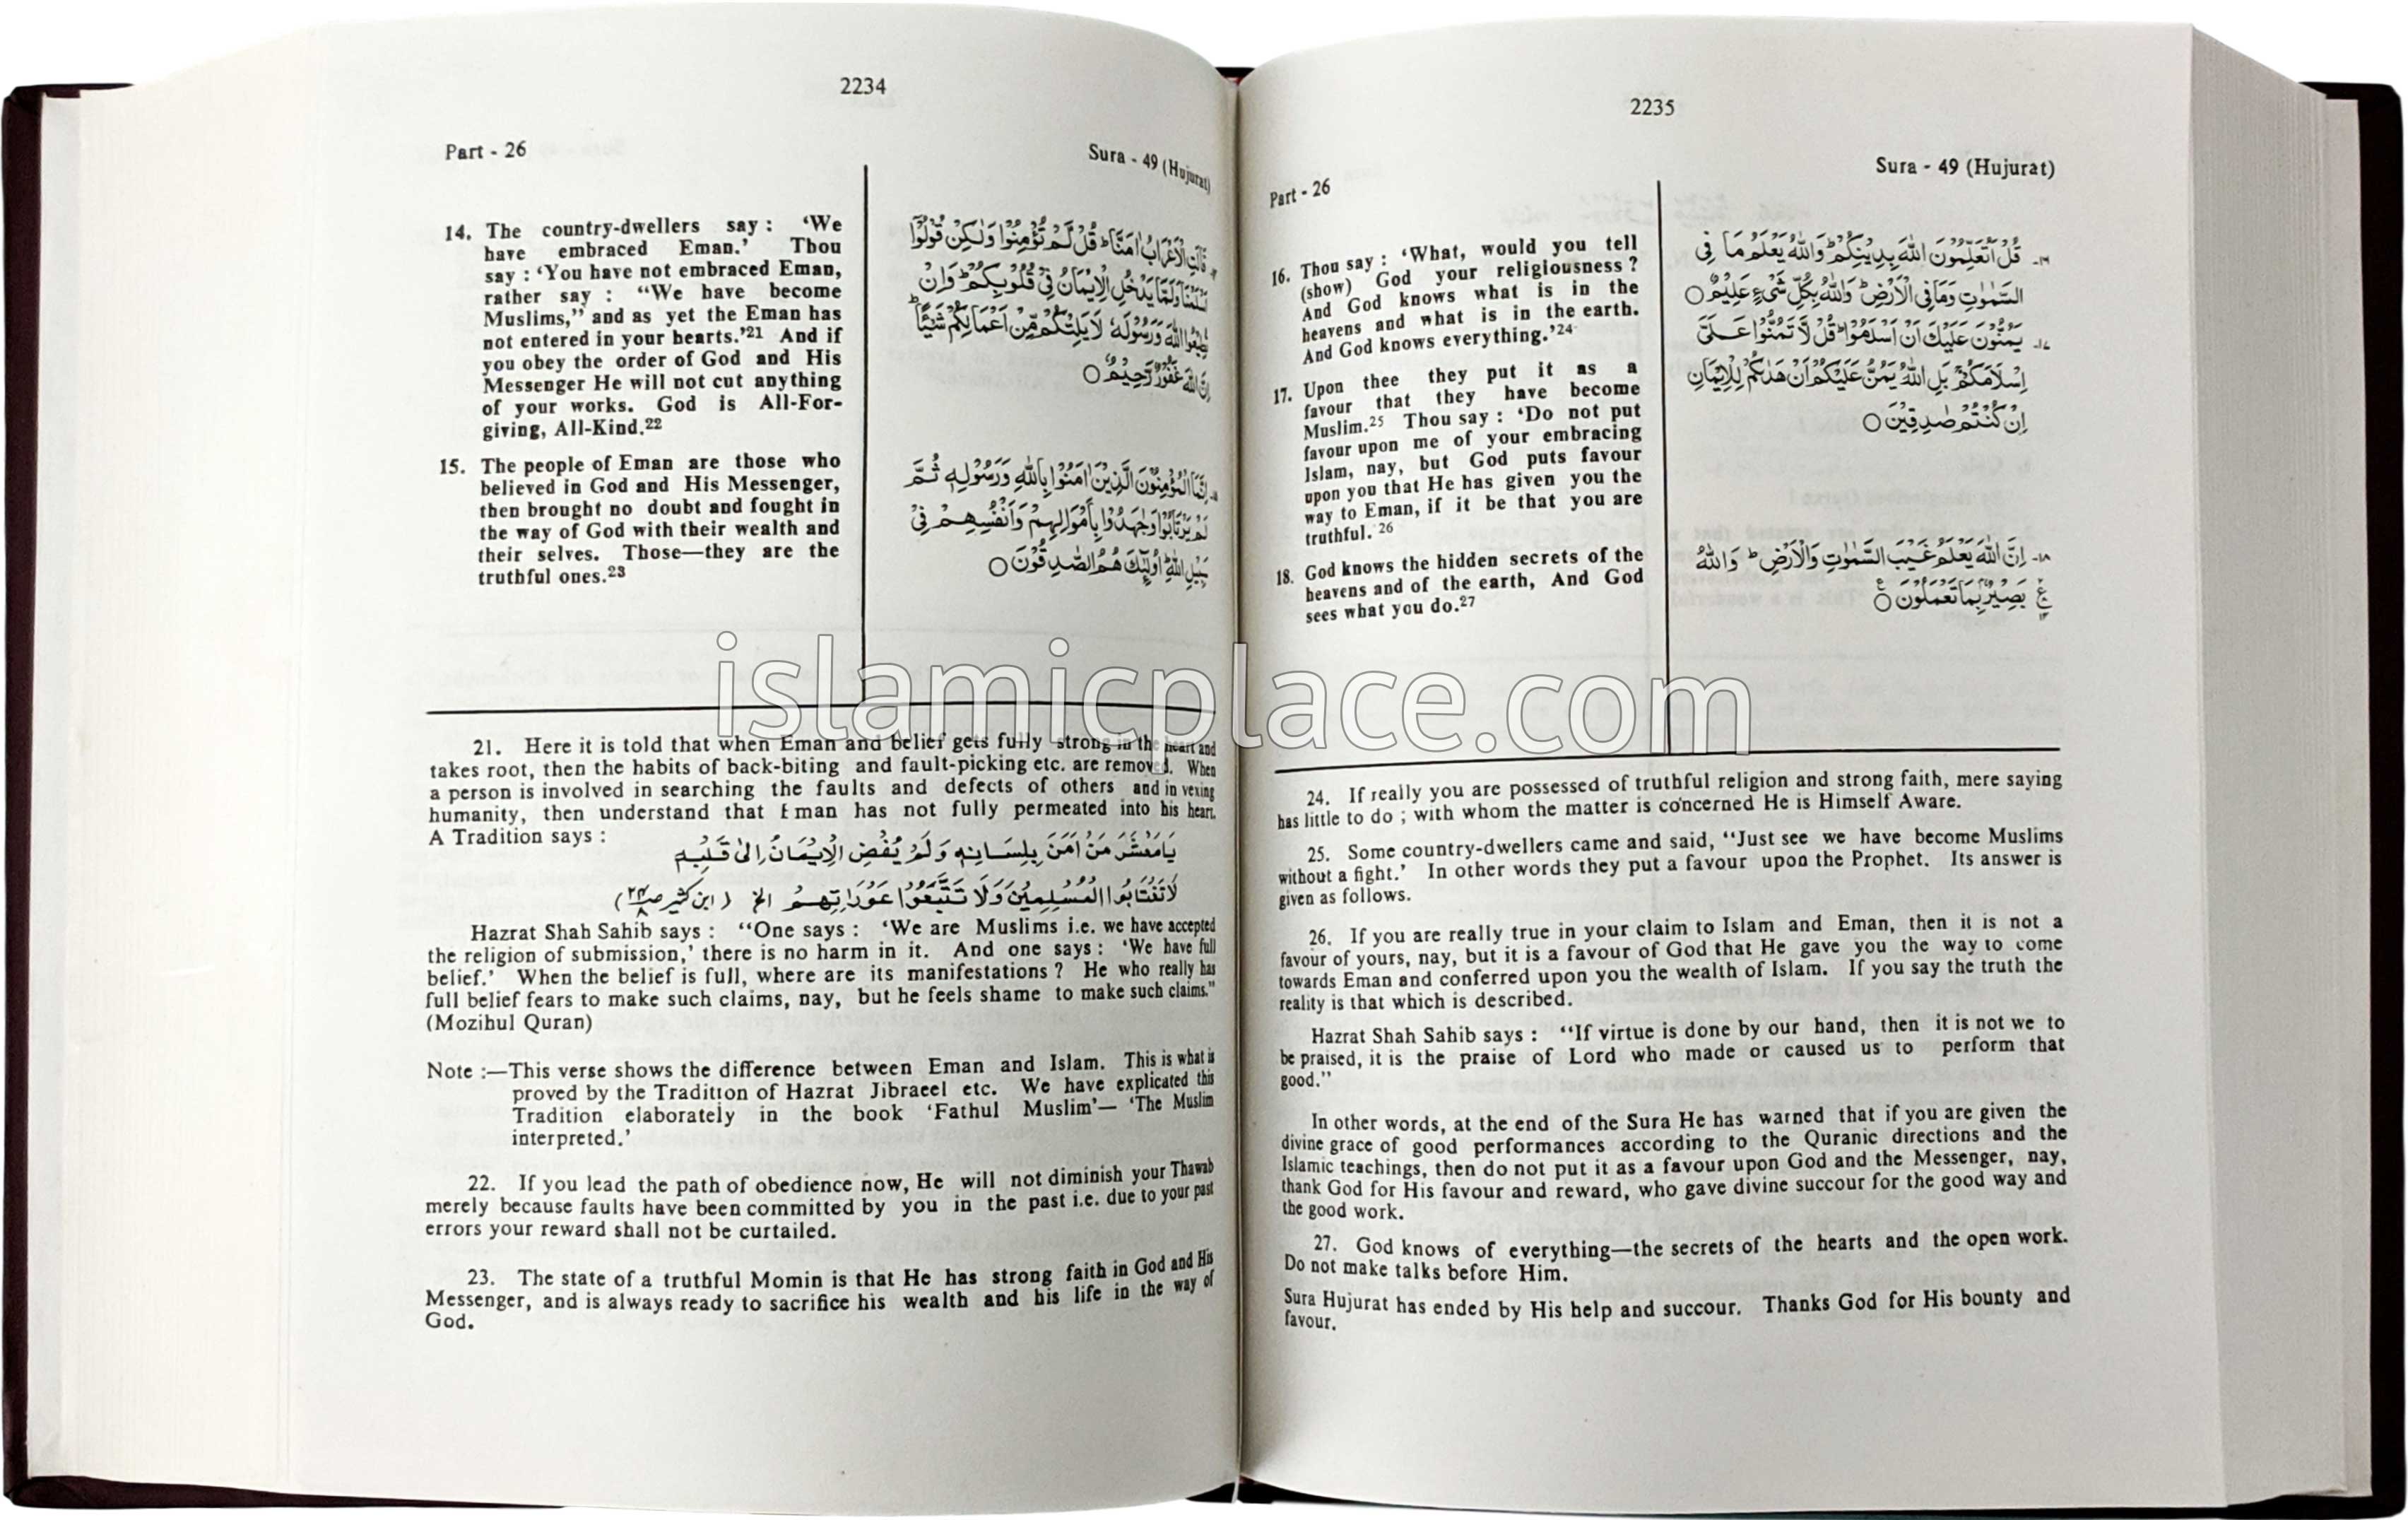 2234
Part - 26
Sura - 49 (Hujurat)
14. The country-dwellers say : ‘We
have embraced Eman.’ Thou
say : ‘You have not embraced Eman,
rather say : “We have become
Muslims,” and as yet the Eman has
not entered in your hearts.’21 And if
you obey the order of God and His
Messenger He will not cut anything
of your works. God is All-For-
giving, All-Kind.22
15. The people of Eman are those who
believed in God and His Messenger,
then brought no doubt and fought in
the way of God with their wealth and
their selves. Those—they are the
truthful ones.23
قَالَتِ الْاَعْرَابُ اٰمَنَّا ؕ قُلْ لَّمْ تُؤْمِنُوْا وَلٰكِنْ قُوْلُوْۤا
اَسْلَمْنَا وَلَمَّا يَدْخُلِ الْاِيْمَانُ فِيْ قُلُوْبِكُمْ ؕ وَاِنْ
تُطِيْعُوا اللّٰهَ وَرَسُوْلَهٗ لَا يَلِتْكُمْ مِّنْ اَعْمَالِكُمْ شَيْـًٔا ؕ
اِنَّ اللّٰهَ غَفُوْرٌ رَّحِيْمٌ ○
اِنَّمَا الْمُؤْمِنُوْنَ الَّذِيْنَ اٰمَنُوْا بِاللّٰهِ وَرَسُوْلِهٖ ثُمَّ
لَمْ يَرْتَابُوْا وَجٰهَدُوْا بِاَمْوَالِهِمْ وَاَنْفُسِهِمْ فِيْ
سَبِيْلِ اللّٰهِ ؕ اُولٰٓئِكَ هُمُ الصّٰدِقُوْنَ ○
21. Here it is told that when Eman and belief gets fully strong in the heart and
takes root, then the habits of back-biting and fault-picking etc. are removed. When
a person is involved in searching the faults and defects of others and in vexing
humanity, then understand that Eman has not fully permeated into his heart.
A Tradition says :
يَا مَعْشَرَ مَنْ اٰمَنَ بِلِسَانِهٖ وَلَمْ يُفْضِ الْاِيْمَانُ اِلىٰ قَلْبِهٖ
لَا تَغْتَابُوا الْمُسْلِمِيْنَ وَلَا تَتَّبِعُوْا عَوْرَاتِهِمْ الخ (ابن کثیر
Hazrat Shah Sahib says : “One says : ‘We are Muslims i.e. we have accepted
the religion of submission,’ there is no harm in it. And one says : ‘We have full
belief.’ When the belief is full, where are its manifestations ? He who really has
full belief fears to make such claims, nay, but he feels shame to make such claims.”
(Mozihul Quran)
Note :—This verse shows the difference between Eman and Islam. This is what is
proved by the Tradition of Hazrat Jibraeel etc. We have explicated this
Tradition elaborately in the book ‘Fathul Muslim’— ‘The Muslim
interpreted.’
22. If you lead the path of obedience now, He will not diminish your Thawab
merely because faults have been committed by you in the past i.e. due to your past
errors your reward shall not be curtailed.
23. The state of a truthful Momin is that He has strong faith in God and His
Messenger, and is always ready to sacrifice his wealth and his life in the way of
God.
2235
Part - 26
Sura - 49 (Hujurat)
16. Thou say : ‘What, would you tell
(show) God your religiousness ?
And God knows what is in the
heavens and what is in the earth.
And God knows everything.’24
17. Upon thee they put it as a
favour that they have become
Muslim.25 Thou say : ‘Do not put
favour upon me of your embracing
Islam, nay, but God puts favour
upon you that He has given you the
way to Eman, if it be that you are
truthful.’26
18. God knows the hidden secrets of the
heavens and of the earth, And God
sees what you do.27
۱۶- قُلْ اَتُعَلِّمُوْنَ اللّٰهَ بِدِيْنِكُمْ ؕ وَاللّٰهُ يَعْلَمُ مَا فِي
السَّمٰوٰتِ وَمَا فِي الْاَرْضِ ؕ وَاللّٰهُ بِكُلِّ شَيْءٍ عَلِيْمٌ ○
۱۷- يَمُنُّوْنَ عَلَيْكَ اَنْ اَسْلَمُوْا ؕ قُلْ لَّا تَمُنُّوْا عَلَيَّ
اِسْلَامَكُمْ ۚ بَلِ اللّٰهُ يَمُنُّ عَلَيْكُمْ اَنْ هَدٰىكُمْ لِلْاِيْمَانِ
اِنْ كُنْتُمْ صٰدِقِيْنَ ○
۱۸- اِنَّ اللّٰهَ يَعْلَمُ غَيْبَ السَّمٰوٰتِ وَالْاَرْضِ ؕ وَاللّٰهُ
بَصِيْرٌۢ بِمَا تَعْمَلُوْنَ ○
24. If really you are possessed of truthful religion and strong faith, mere saying
has little to do ; with whom the matter is concerned He is Himself Aware.
25. Some country-dwellers came and said, “Just see we have become Muslims
without a fight.’ In other words they put a favour upon the Prophet. Its answer is
given as follows.
26. If you are really true in your claim to Islam and Eman, then it is not a
favour of yours, nay, but it is a favour of God that He gave you the way to come
towards Eman and conferred upon you the wealth of Islam. If you say the truth the
reality is that which is described.
Hazrat Shah Sahib says : “If virtue is done by our hand, then it is not we to
be praised, it is the praise of Lord who made or caused us to perform that
good.”
In other words, at the end of the Sura He has warned that if you are given the
divine grace of good performances according to the Quranic directions and the
Islamic teachings, then do not put it as a favour upon God and the Messenger, nay,
thank God for His favour and reward, who gave divine succour for the good way and
the good work.
27. God knows of everything—the secrets of the hearts and the open work.
Do not make talks before Him.
Sura Hujurat has ended by His help and succour. Thanks God for His bounty and
favour.
islamicplace.com